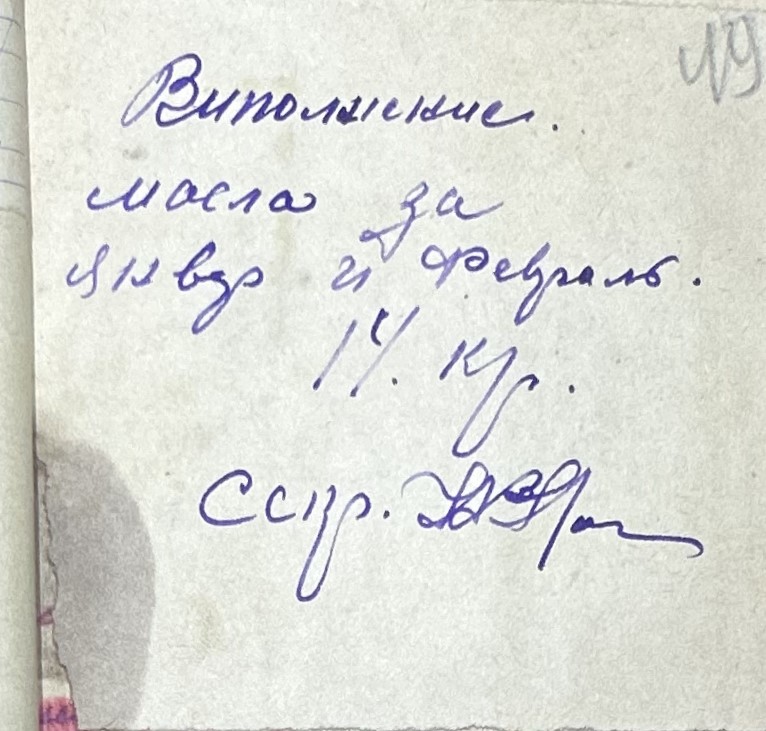 19
Виполнение.
масла за
январ и Февраль.
14. кр.
Секр.